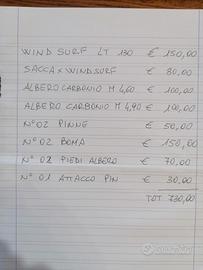 WIND SURF LT 130 € 150,00
SACCA X WINDSURF € 80,00
ALBERO CARBONIO M 4,60 € 100,00
ALBERO CARBONIO M 4,90 € 100,00
N°02 PINNE € 50,00
N°02 BOMA € 150,00
N°02 PIEDI ALBERO € 70,00
N°01 ATTACCO PIN € 30,00
TOT 730,00
subito